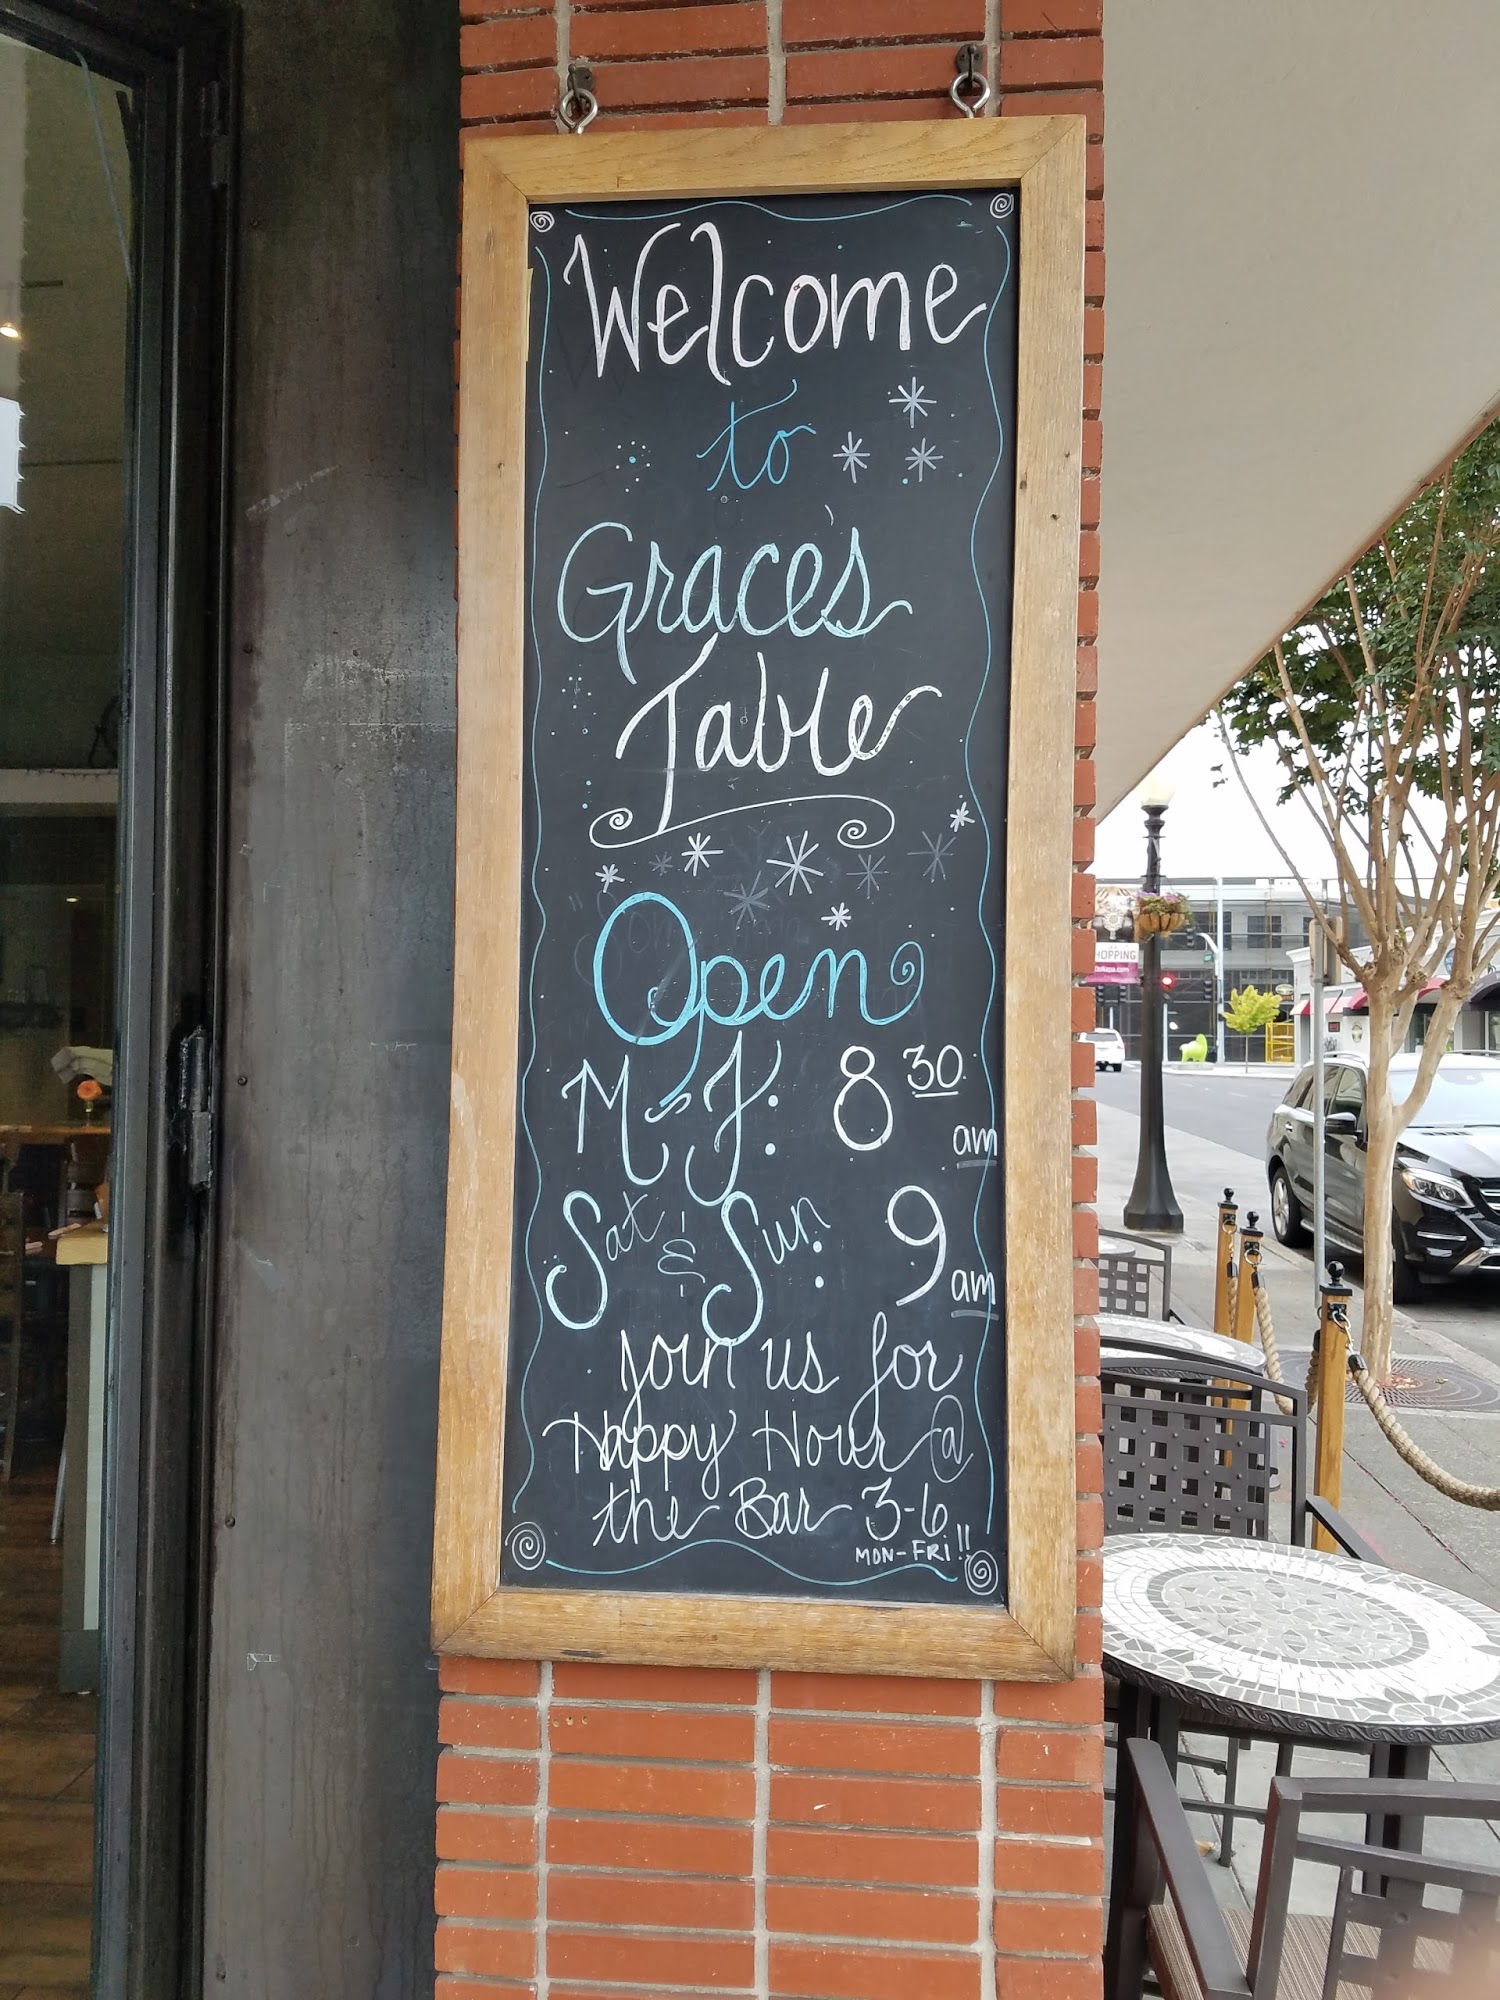 Welcome
to
Grace's
Table
Open
M-F: 8 30 am
Sat & Sun: 9 am
Join us for
Happy Hour @
the Bar 3-6
MON-FRI!!
HOPPING